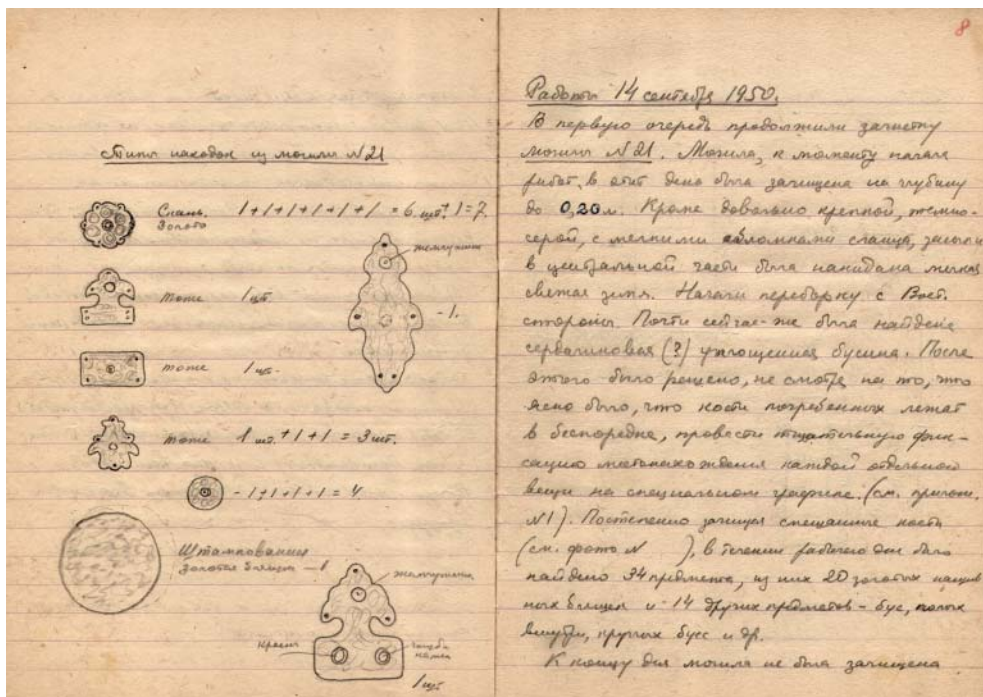 Типы находок из могилы N21
Скань. 1+1+1+1+1+1 = 6 шт. + 1 = 7
Золото
жемчужина
тоже 1 шт.
- 1.
тоже 1 шт.
тоже 1 шт. +1+1 = 3 шт.
- 1+1+1+1 = 4
Штампованная
золотая бляшка - 1
жемчужина
красн
голуб.
камен
1 шт
8
Работы 14 сентября 1950.
В первую очередь продолжили зачистку
могилы N21. Могила, к моменту начала
работ, в этот день была зачищена на глубину
до 0,20 м. Кроме довольно крепкой, темно-
серой, с мелкими обломками сланца, засыпи
в центральной части была накидана мягкая
свежая земля. Начали переборку с Вост.
стороны. Почти сейчас-же была найдена
сердоликовая (?) уплощенная бусина. После
этого было решено, не смотря на то, что
ясно было, что кости погребенных лежат
в беспорядке, провести тщательную фик-
сацию местонахождения каждой отдельной
вещи на специальном графике. (см. прилож.
N1). Постепенно зачищая смещанные кости
(см. фото N ), в течении рабочего дня было
найдено 34 предмета, из них 20 золотых нашив
ных бляшек и 14 других предметов - бус, полых
внутри, круглых бусс и др.
К концу дня могила не была зачищена